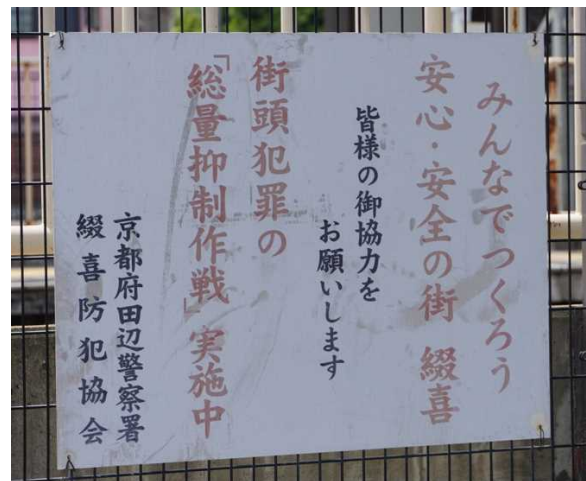 みんなでつくろう
安心・安全の街 綴喜
皆様の御協力を
お願いします
街頭犯罪の
「総量抑制作戦」実施中
京都府田辺警察署
綴喜防犯協会